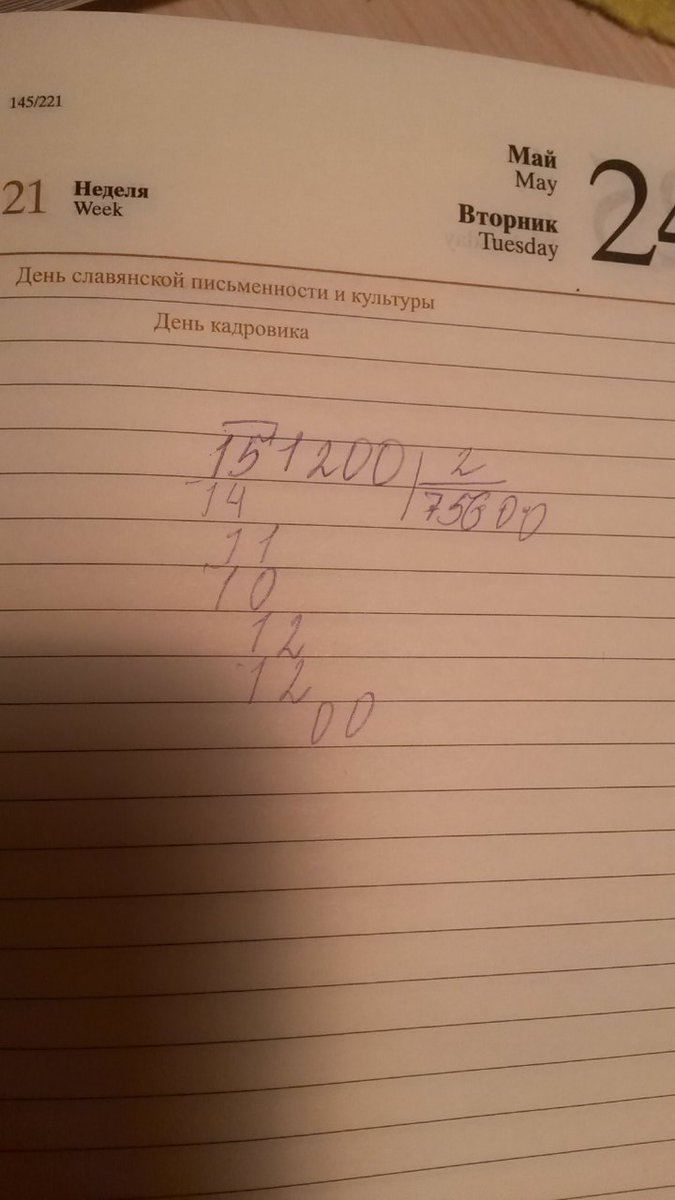 145/221
Май
May
24
21
Неделя
Week
Вторник
Tuesday
День славянской письменности и культуры
День кадровика
151200 2
14 75600
11
10
12
12
00